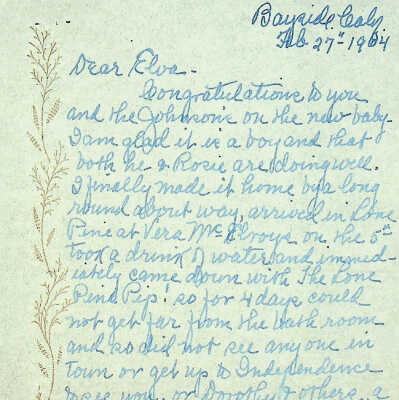 Bayside, Calif.
Feb. 27th 1964
Dear Elva -
Congratulations to you
and the Johnsons on the new baby.
I am glad it is a boy and that
both he & Rosie are doing well.
I finally made it home by a long
round about way, arrived in Lone
Pine at Vera McElroys on the 5th
took a drink of water and immed-
iately came down with The Lone
Pine Pip! so for 4 days could
not get far from the bath room
and so did not see anyone in
town or get up to Independence
to see you or Dorothy & others. a